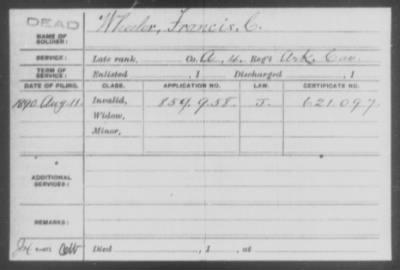 DEAD
Wheeler, Francis, C.
NAME OF SOLDIER:
SERVICE: Late rank, Co. A, 4, Reg't Ark. Cav.
TERM OF SERVICE: Enlisted , 1 Discharged , 1
DATE OF FILING. CLASS. APPLICATION NO. LAW. CERTIFICATE NO.
1890 Aug 11 Invalid, 859.958. J. 621.097
Widow,
Minor,
ADDITIONAL SERVICES:
REMARKS:
Died , 1 , at